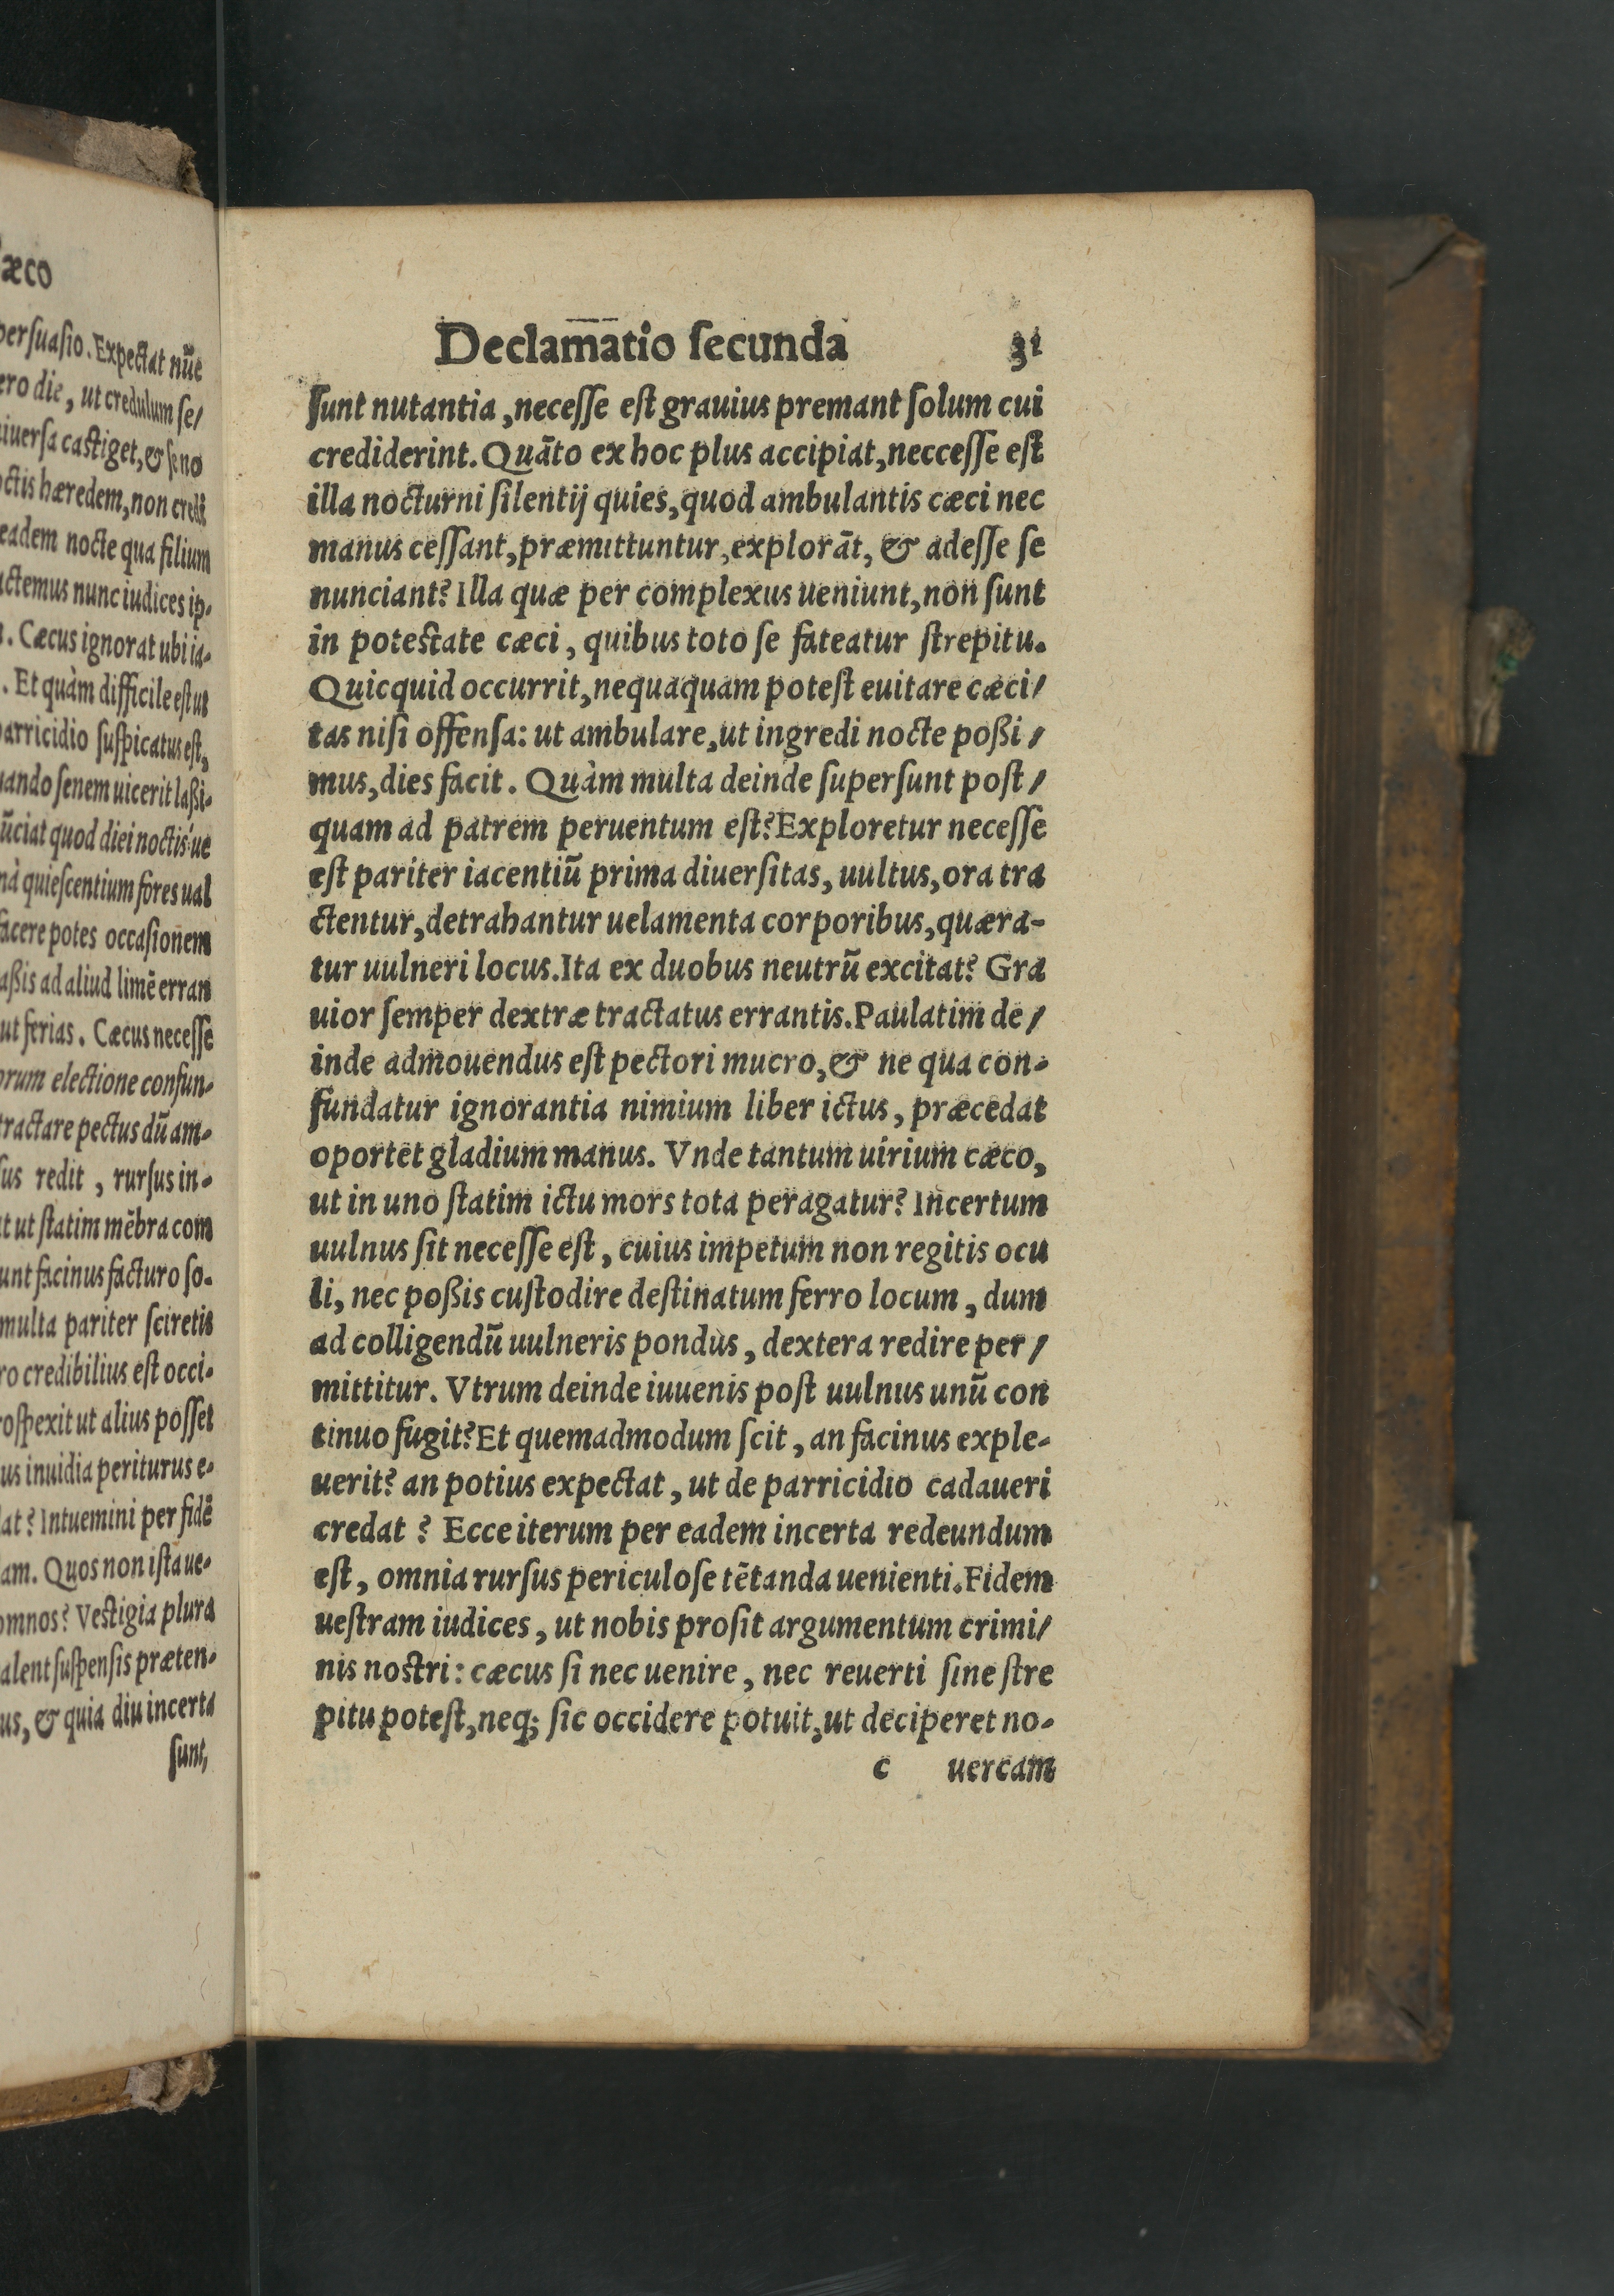 æco
persuasio. Expectat nūc
ero die, ut credulum se/
iuersa castiget, & se no
octis hæredem, non credi
eadem nocte qua filium
actemus nunc iudices ip-
. Cæcus ignorat ubi ia-
. Et quàm difficile est ut
parricidio suspicatus est,
uando senem uicerit laßi-
ūciat quod diei noctis'ue
nà quiescentium fores ual
facere potes occasionem
aßis ad aliud limē erran
ut ferias. Cæcus necesse
orum electione confun-
tractare pectus dū am-
sus redit, rursus in-
t ut statim mēbra com
unt facinus facturo so-
multa pariter sciretis
ro credibilius est occi-
rospexit ut alius posset
us inuidia periturus e-
lat? Intuemini per fidē
am. Quos non ista ue-
omnos? Vestigia plura
alent suspensis præten-
us, & quia diu incerta
sunt,
Declamatio secunda 31
sunt nutantia, necesse est grauius premant solum cui
crediderint. Quāto ex hoc plus accipiat, neccesse est
illa nocturni silentij quies, quod ambulantis cæci nec
manus cessant, præmittuntur, explorāt, & adesse se
nunciant? Illa quæ per complexus ueniunt, non sunt
in potestate cæci, quibus toto se fateatur strepitu.
Quicquid occurrit, nequaquam potest euitare cæci/
tas nisi offensa: ut ambulare, ut ingredi nocte poßi/
mus, dies facit. Quàm multa deinde supersunt post/
quam ad patrem peruentum est? Exploretur necesse
est pariter iacentiū prima diuersitas, uultus, ora tra
ctentur, detrahantur uelamenta corporibus, quæra-
tur uulneri locus. Ita ex duobus neutrū excitat? Gra
uior semper dextræ tractatus errantis. Paulatim de/
inde admouendus est pectori mucro, & ne qua con-
fundatur ignorantia nimium liber ictus, præcedat
oportet gladium manus. Vnde tantum uirium cæco,
ut in uno statim ictu mors tota peragatur? Incertum
uulnus sit necesse est, cuius impetum non regitis ocu
li, nec poßis custodire destinatum ferro locum, dum
ad colligendū uulneris pondus, dextera redire per/
mittitur. Vtrum deinde iuuenis post uulnus unū con
tinuo fugit? Et quemadmodum scit, an facinus exple-
uerit? an potius expectat, ut de parricidio cadaueri
credat? Ecce iterum per eadem incerta redeundum
est, omnia rursus periculose tētanda uenienti. Fidem
uestram iudices, ut nobis prosit argumentum crimi/
nis nostri: cæcus si nec uenire, nec reuerti sine stre
pitu potest, neq; sic occidere potuit, ut deciperet no-
c uercam